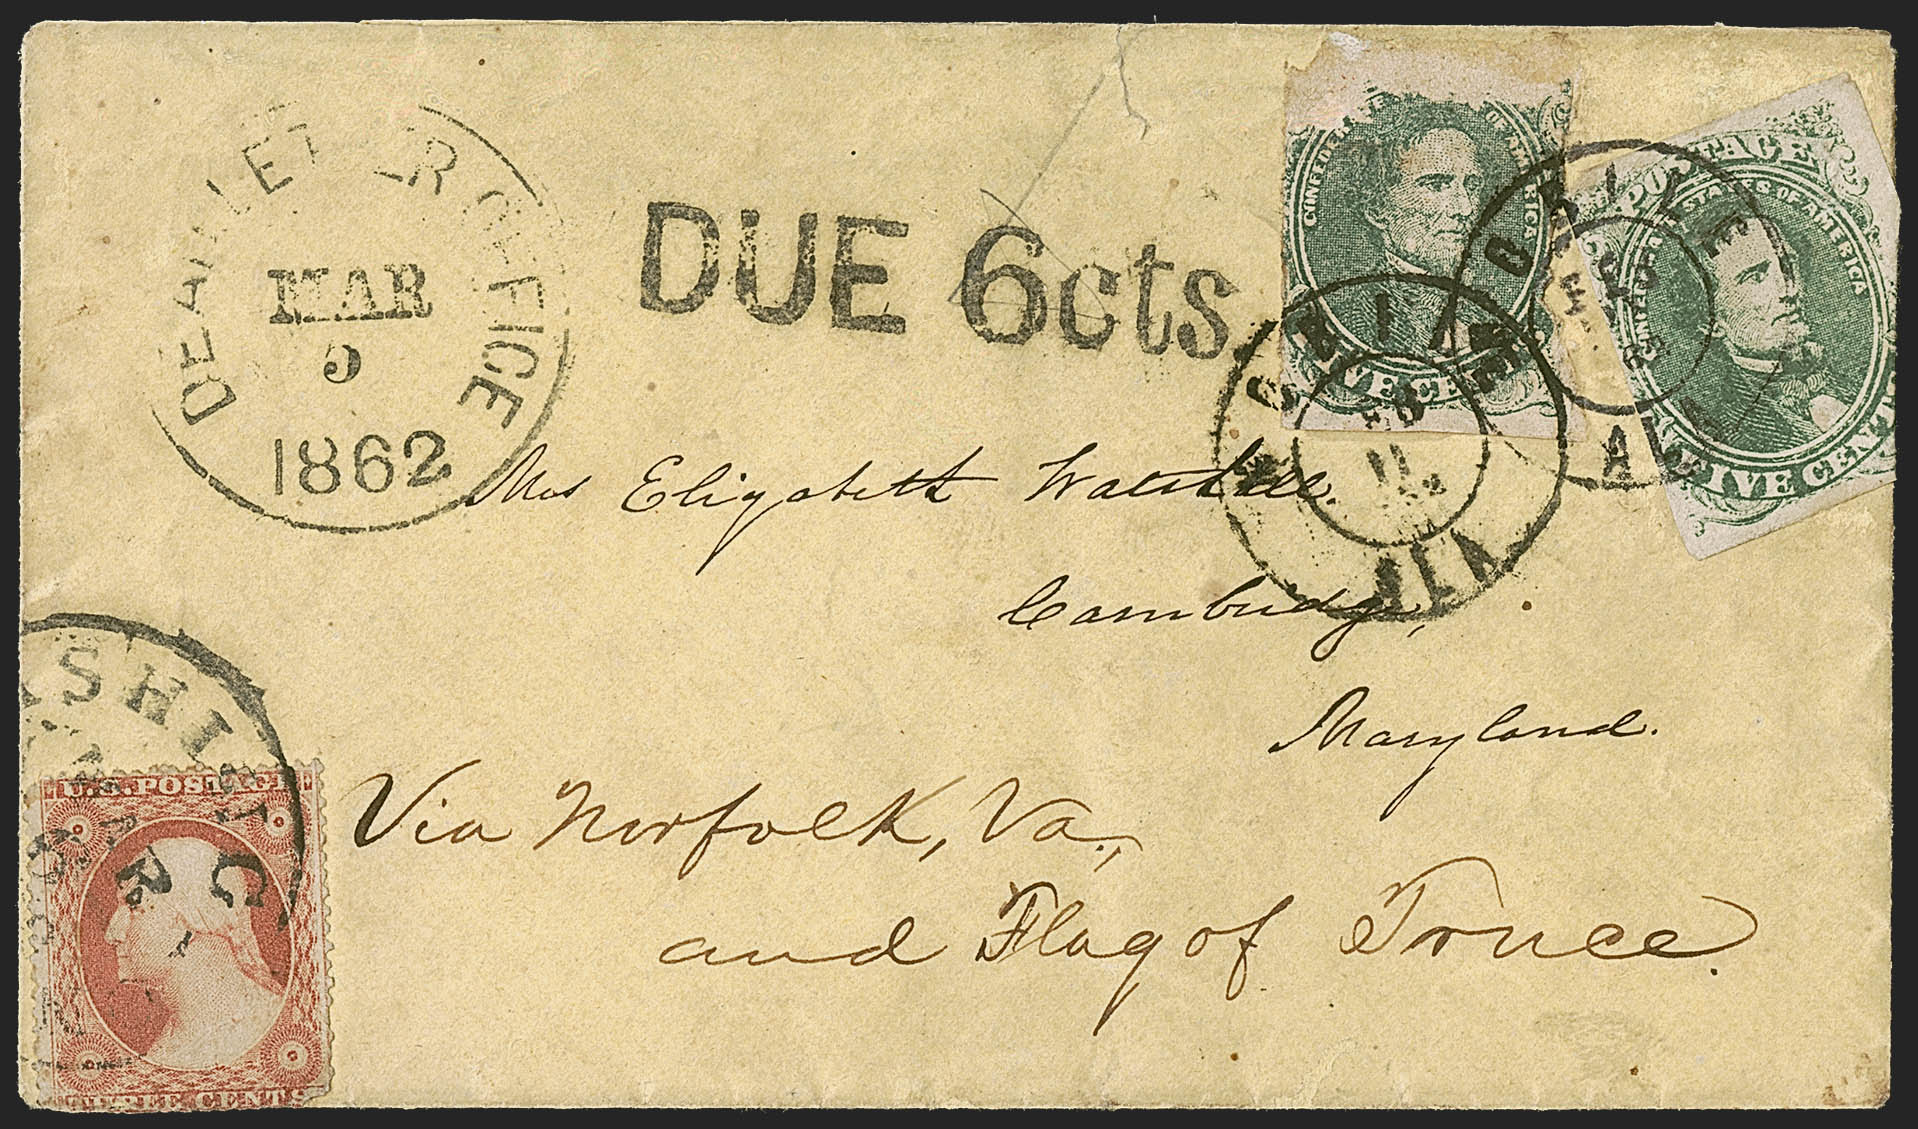 DEAD LETTER OFFICE
MAR
5
1862
DUE 6cts
CONFEDERATE STATES OF AMERICA
FIVE CENTS
POSTAGE
CONFEDERATE STATES OF AMERICA
FIVE CENTS
MOBILE
FEB
ALA
MOBILE
FEB
11
ALA
Mrs Elizabeth
Cambridge,
Maryland.
Via Norfolk, Va.,
and Flag of Truce.
U.S. POSTAGE
THREE CENTS